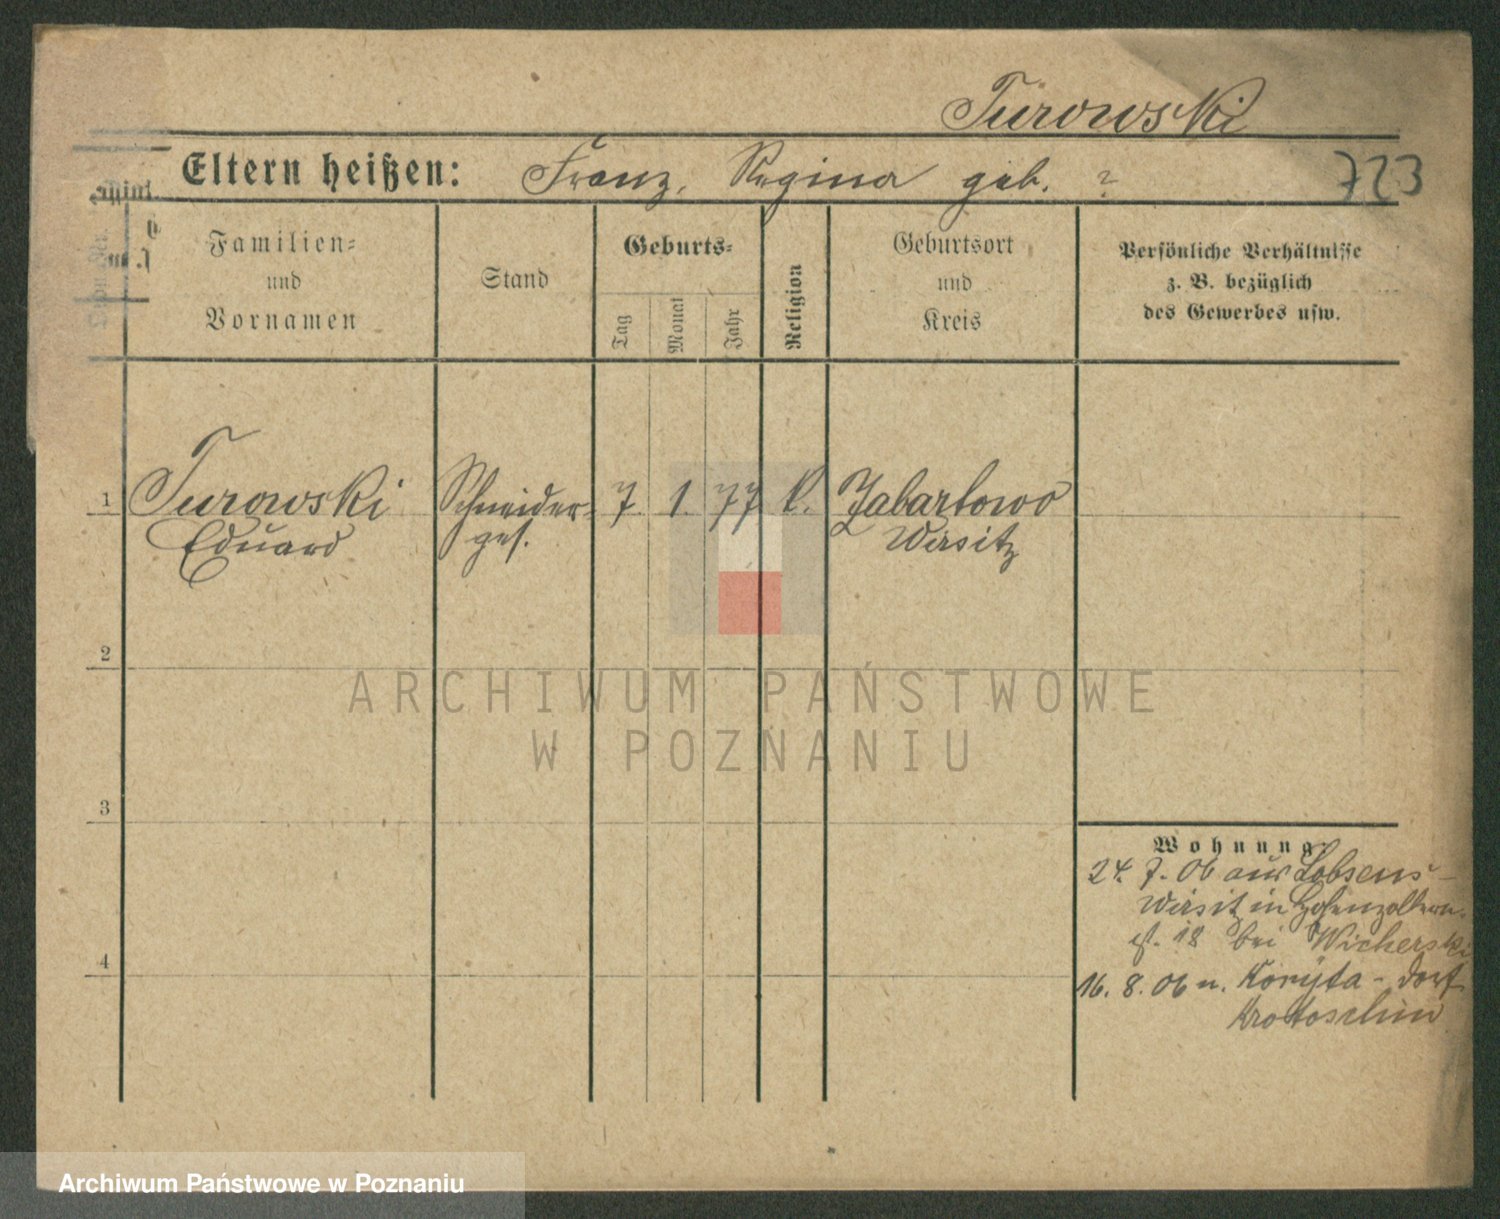 Turowski
Eltern heißen: Franz, Regina geb. ? 723
Familien=
und
Vornamen
Stand
Geburts=
Tag
Monat
Jahr
Religion
Geburtsort
und
Kreis
Persönliche Verhältnisse
z. B. bezüglich
des Gewerbes usw.
1 Turowski Schneider- 7. 1. 77 k. Zabartowo
Eduard ges. Wirsitz
2
3
4
Wohnung
24. 7. 06 aus Lobsens-
Wirsitz in Hohenzollern-
st. 18 bei Wicherski
16. 8. 06 n. Koryta - Dorf
Krotoschin
ARCHIWUM PAŃSTWOWE
W POZNANIU
Archiwum Państwowe w Poznaniu